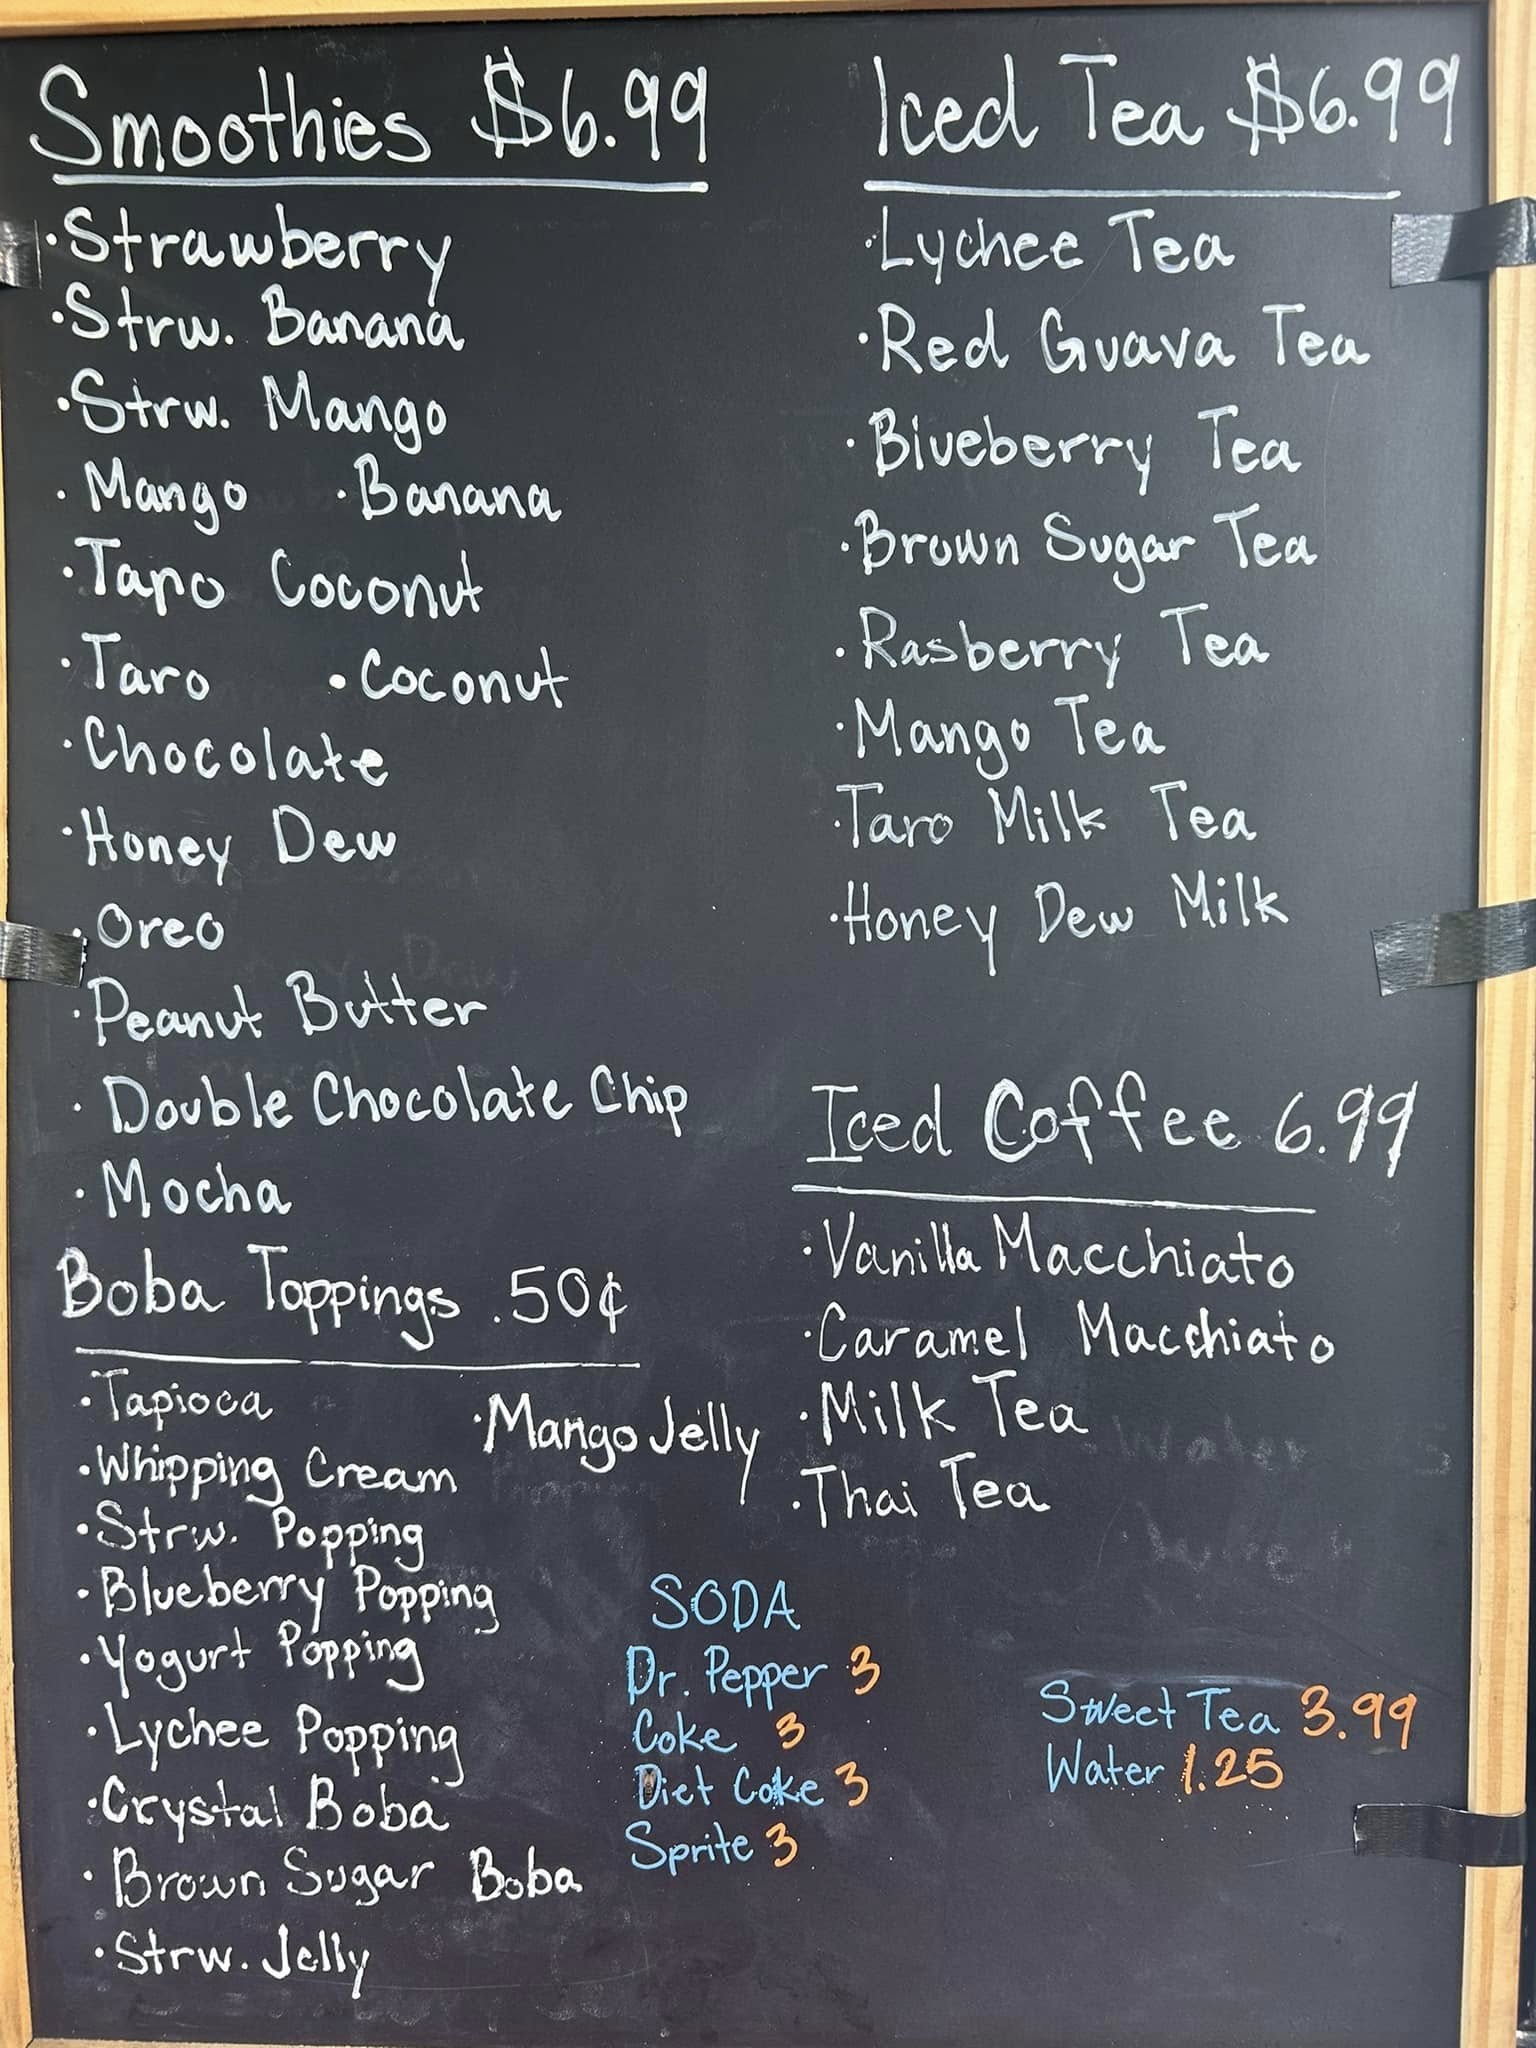 Smoothies $6.99
·Strawberry
·Strw. Banana
·Strw. Mango
·Mango ·Banana
·Taro Coconut
·Taro ·Coconut
·Chocolate
·Honey Dew
·Oreo
·Peanut Butter
·Double Chocolate Chip
·Mocha
Boba Toppings .50¢
·Tapioca ·Mango Jelly
·Whipping Cream
·Strw. Popping
·Blueberry Popping
·Yogurt Popping
·Lychee Popping
·Crystal Boba
·Brown Sugar Boba
·Strw. Jelly
Iced Tea $6.99
·Lychee Tea
·Red Guava Tea
·Blueberry Tea
·Brown Sugar Tea
·Rasberry Tea
·Mango Tea
·Taro Milk Tea
·Honey Dew Milk
Iced Coffee 6.99
·Vanilla Macchiato
·Caramel Macchiato
·Milk Tea
·Thai Tea
SODA
Dr. Pepper 3
Coke 3
Diet Coke 3
Sprite 3
Sweet Tea 3.99
Water 1.25